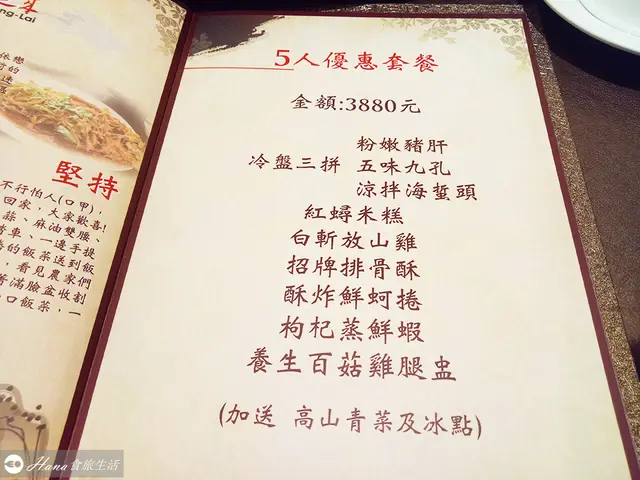 ng-Lai
堅持
不行怕人(口甲),
回家,大家歡喜!
蒜、麻油雙腰、
看見農家們
著滿臉盆收割
口飯菜,一
5人優惠套餐
金額:3880元
粉嫩豬肝
冷盤三拼 五味九孔
涼拌海蜇頭
紅蟳米糕
白斬放山雞
招牌排骨酥
酥炸鮮蚵捲
枸杞蒸鮮蝦
養生百菇雞腿盅
(加送 高山青菜及冰點)
Hana 食旅生活